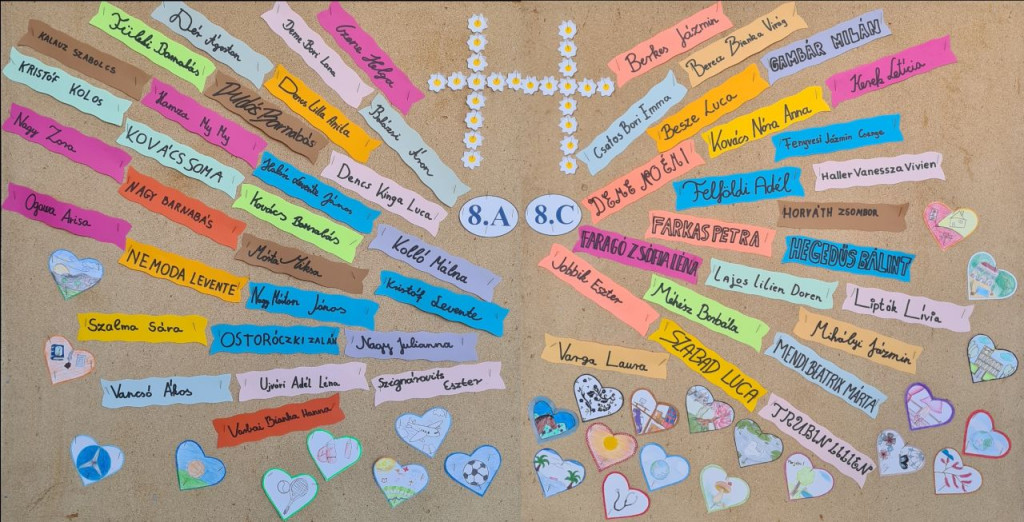 Füleki Barnabás
Deér Ágoston
Deme Bori Lena
Czene Helga
KALAUZ SZABOLCS
KRISTÓF KOLOS
Hamza My My
DULLÓS Barnabás
Dencs Lilla Anila
Balázsi Áron
Nagy Zora
KOVÁCS SOMA
Halász Levente János
Dencs Kinga Luca
Ogawa Arisa
NAGY BARNABÁS
Kovács Barnabás
Kolló Málna
NEMODA LEVENTE
Móita Miksa
Kristóf Levente
Nagy Nádor János
Szalma Sára
OSTORÓCZKI ZALÁN
Nagy Julianna
Vancsó Ákos
Ujvári Adél Léna
Szignárovits Eszter
Varbai Bianka Hanna
8.A
8.C
Berkes Jázmin
Berecz Bianka Virág
GAMBÁR MILÁN
Kerek Letícia
Csatos Bori Imma
Besze Luca
Kovács Nóra Anna
Fenyvesi Jázmin Csenge
DEME NOÉMI
Felföldi Adél
Haller Vanessza Vivien
FARKAS PETRA
HORVÁTH ZSOMBOR
FARAGÓ ZSÓFIA LÉNA
HEGEDŰS BÁLINT
Jobbik Eszter
Lajos Lilien Doren
Liptók Lívia
Méhész Borbála
Mihályi Jázmin
Varga Laura
SZABAD LUCA
MENDI BEATRIX MÁRTA
TRUBIN LILIEN